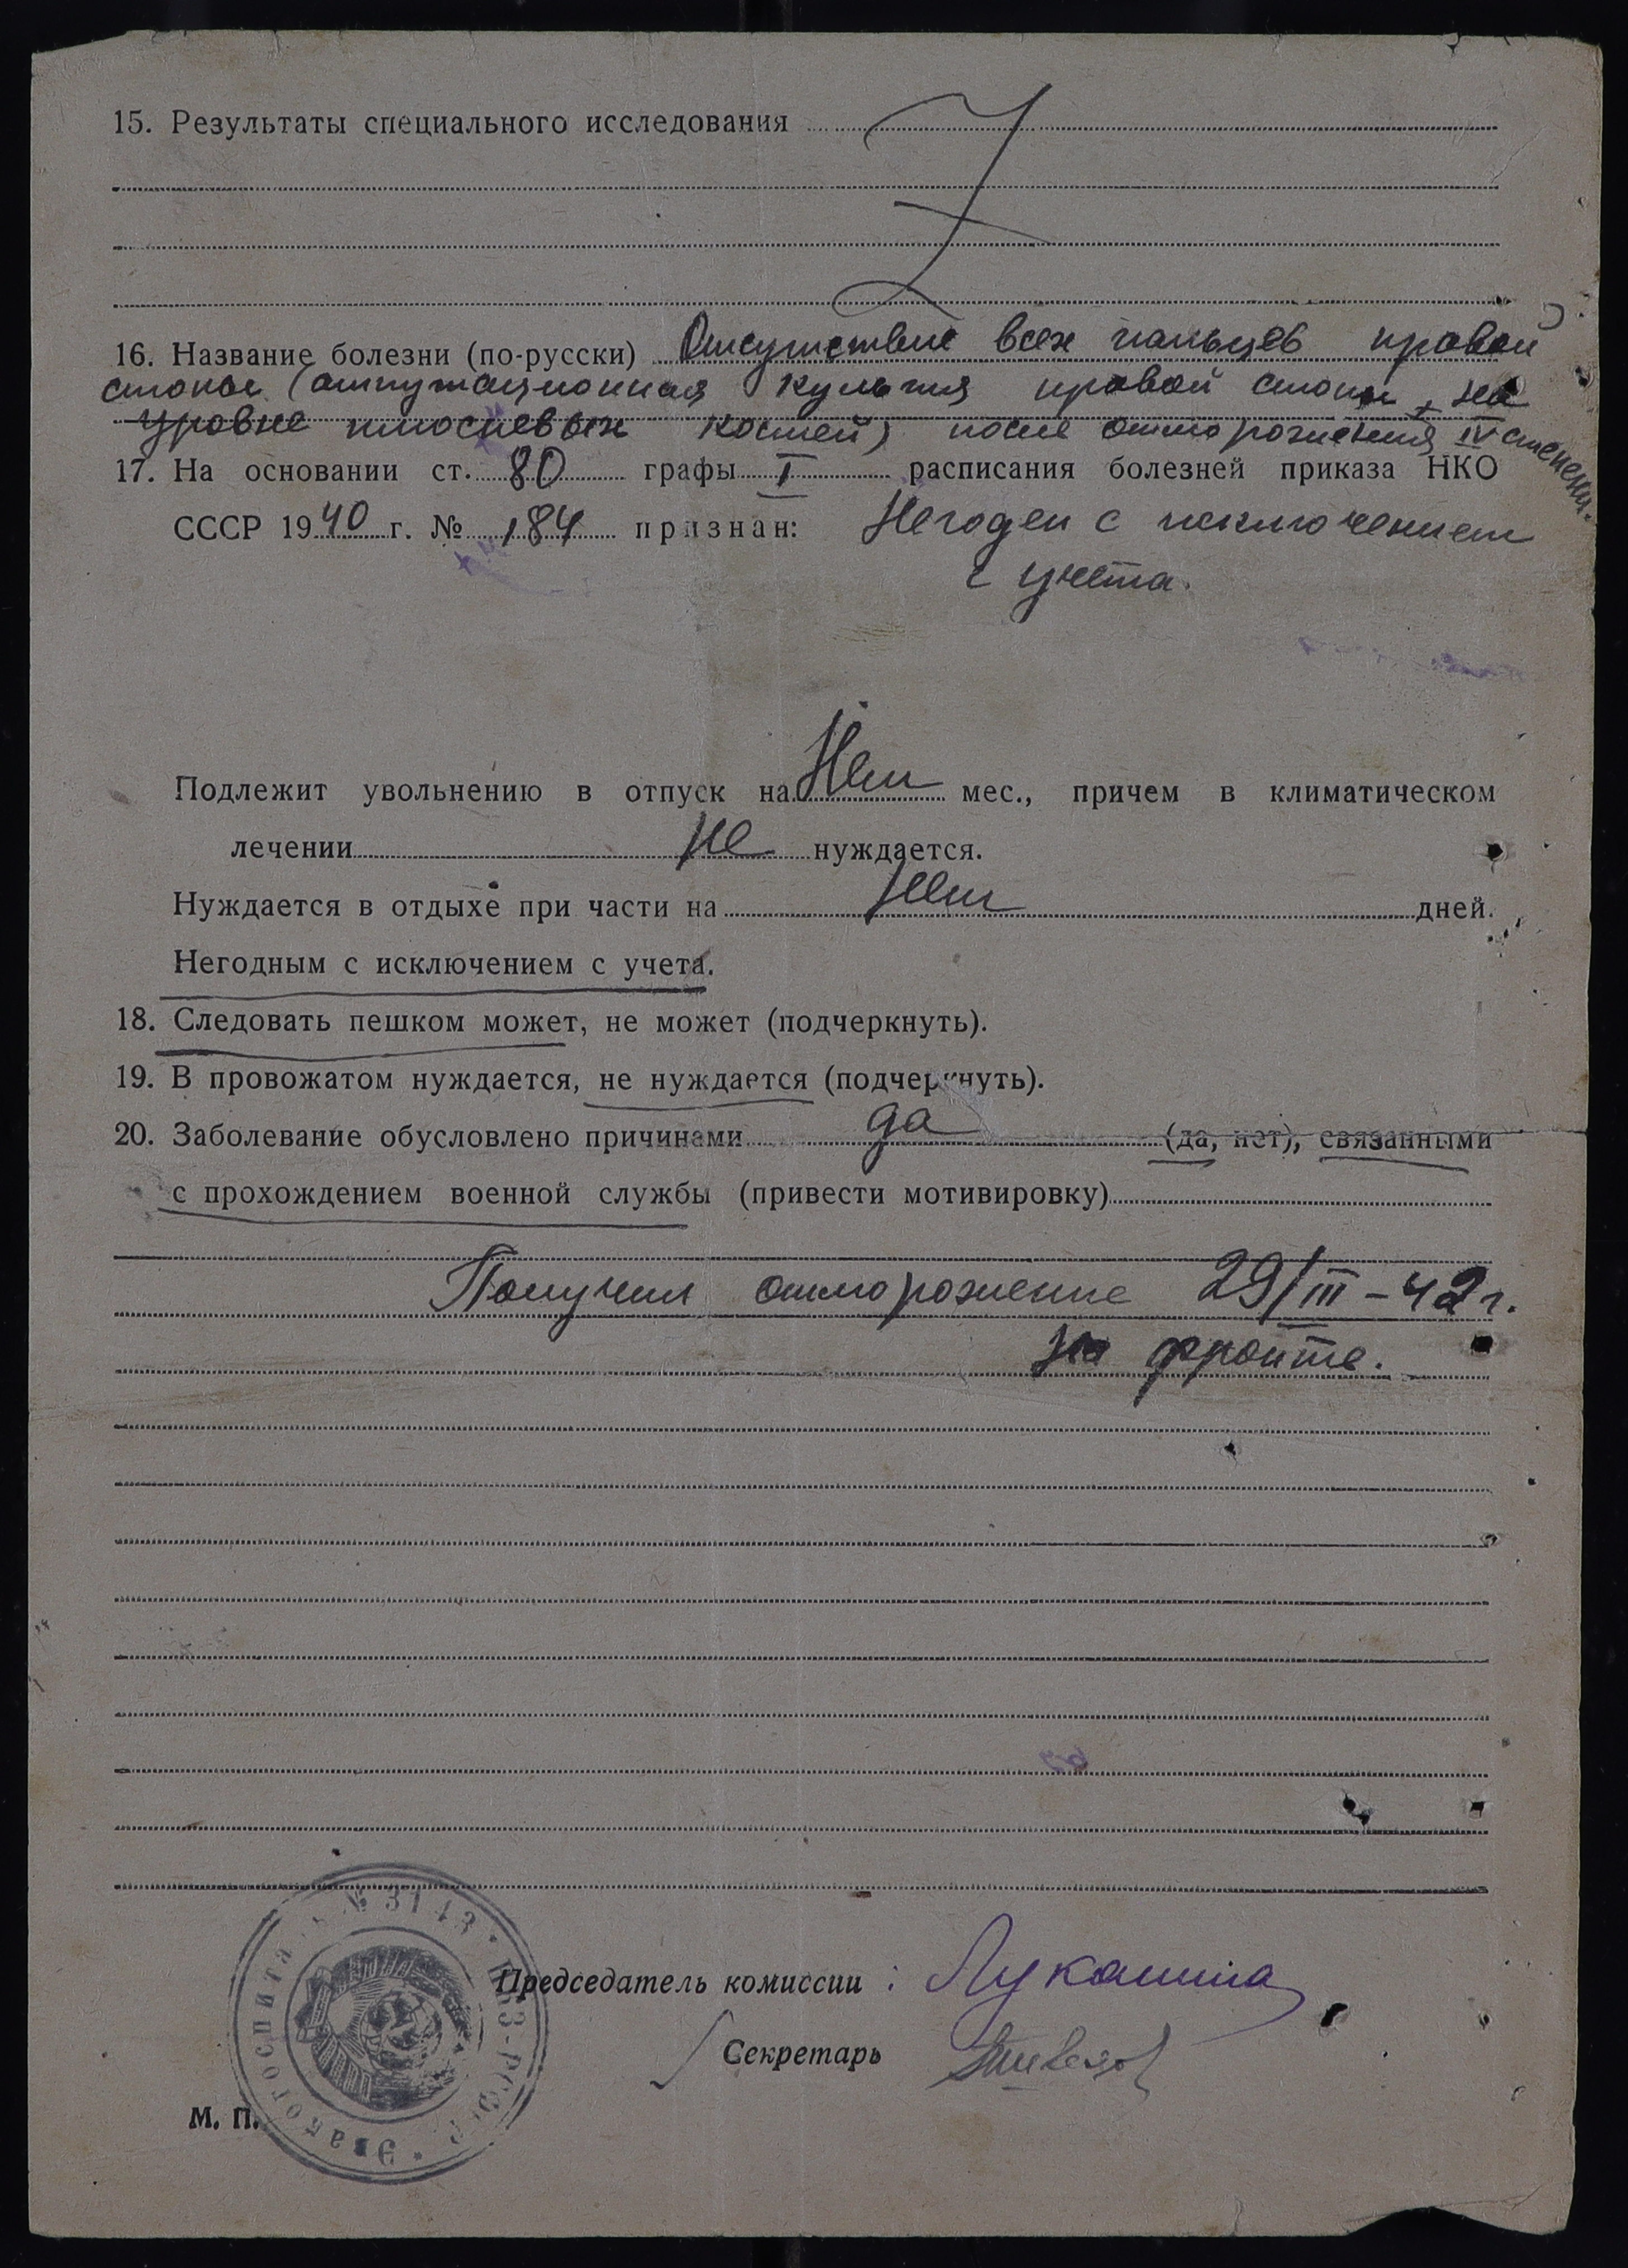 15. Результаты специального исследования
16. Название болезни (по-русски) Отсутствие всех пальцев правой
стопы (ампутационная культя правой стопы на
уровне плюсневых костей) после отморожения IV степени.
17. На основании ст. 80 графы I расписания болезней приказа НКО
СССР 1940 г. № 184 признан: Негоден с исключением
с учета.
Подлежит увольнению в отпуск на Нет мес., причем в климатическом
лечении не нуждается.
Нуждается в отдыхе при части на Нет дней.
Негодным с исключением с учета.
18. Следовать пешком может, не может (подчеркнуть).
19. В провожатом нуждается, не нуждается (подчеркнуть).
20. Заболевание обусловлено причинами да (да, нет), связанными
с прохождением военной службы (привести мотивировку)
Получил отморожение 29/III-42 г.
на фронте.
Эвакогоспиталь № 3143 НКЗ-РСФСР
Председатель комиссии : Лукашина
Секретарь
М. П.